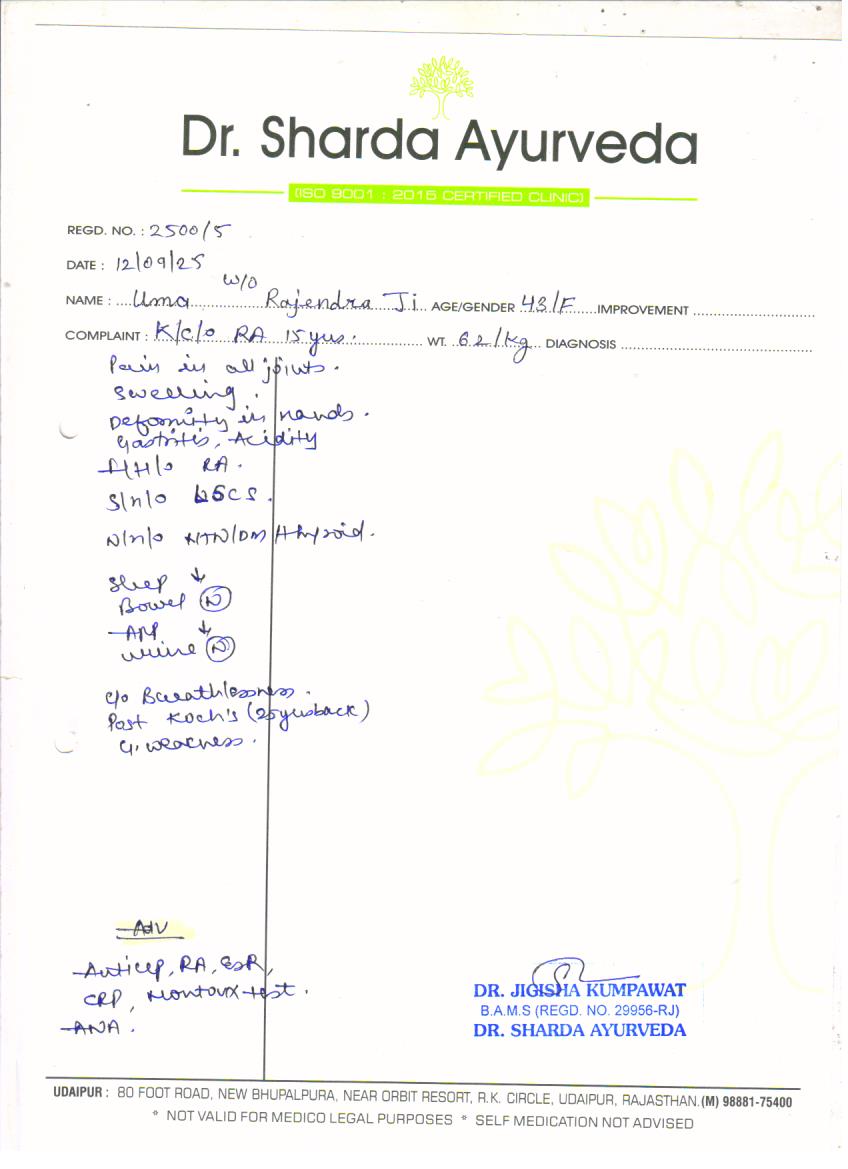 Dr. Sharda Ayurveda
(ISO 9001 : 2015 CERTIFIED CLINIC)
REGD. NO. : 2500/5
DATE : 12/09/25
NAME : Uma W/O Rajendra Ji AGE/GENDER 43/F IMPROVEMENT
COMPLAINT : K/c/o RA 15 yrs. WT. 62/kg DIAGNOSIS
Pain in all joints.
Swelling.
Deformity in hands.
Gastritis, Acidity
F/H/o RA.
S/H/o LSCS.
N/H/o HTN/DM/Thyroid.
Sleep ↓
Bowel (N)
APP ↓
Urine (N)
c/o Breathlessness.
Past Koch's (25 yrs back)
G. weakness.
Adv
Anti ccp, RA, ESR,
CRP, Montoux test.
ANA.
DR. JIGISHA KUMPAWAT
B.A.M.S (REGD. NO. 29956-RJ)
DR. SHARDA AYURVEDA
UDAIPUR : 80 FOOT ROAD, NEW BHUPALPURA, NEAR ORBIT RESORT, R.K. CIRCLE, UDAIPUR, RAJASTHAN. (M) 98881-75400
* NOT VALID FOR MEDICO LEGAL PURPOSES * SELF MEDICATION NOT ADVISED